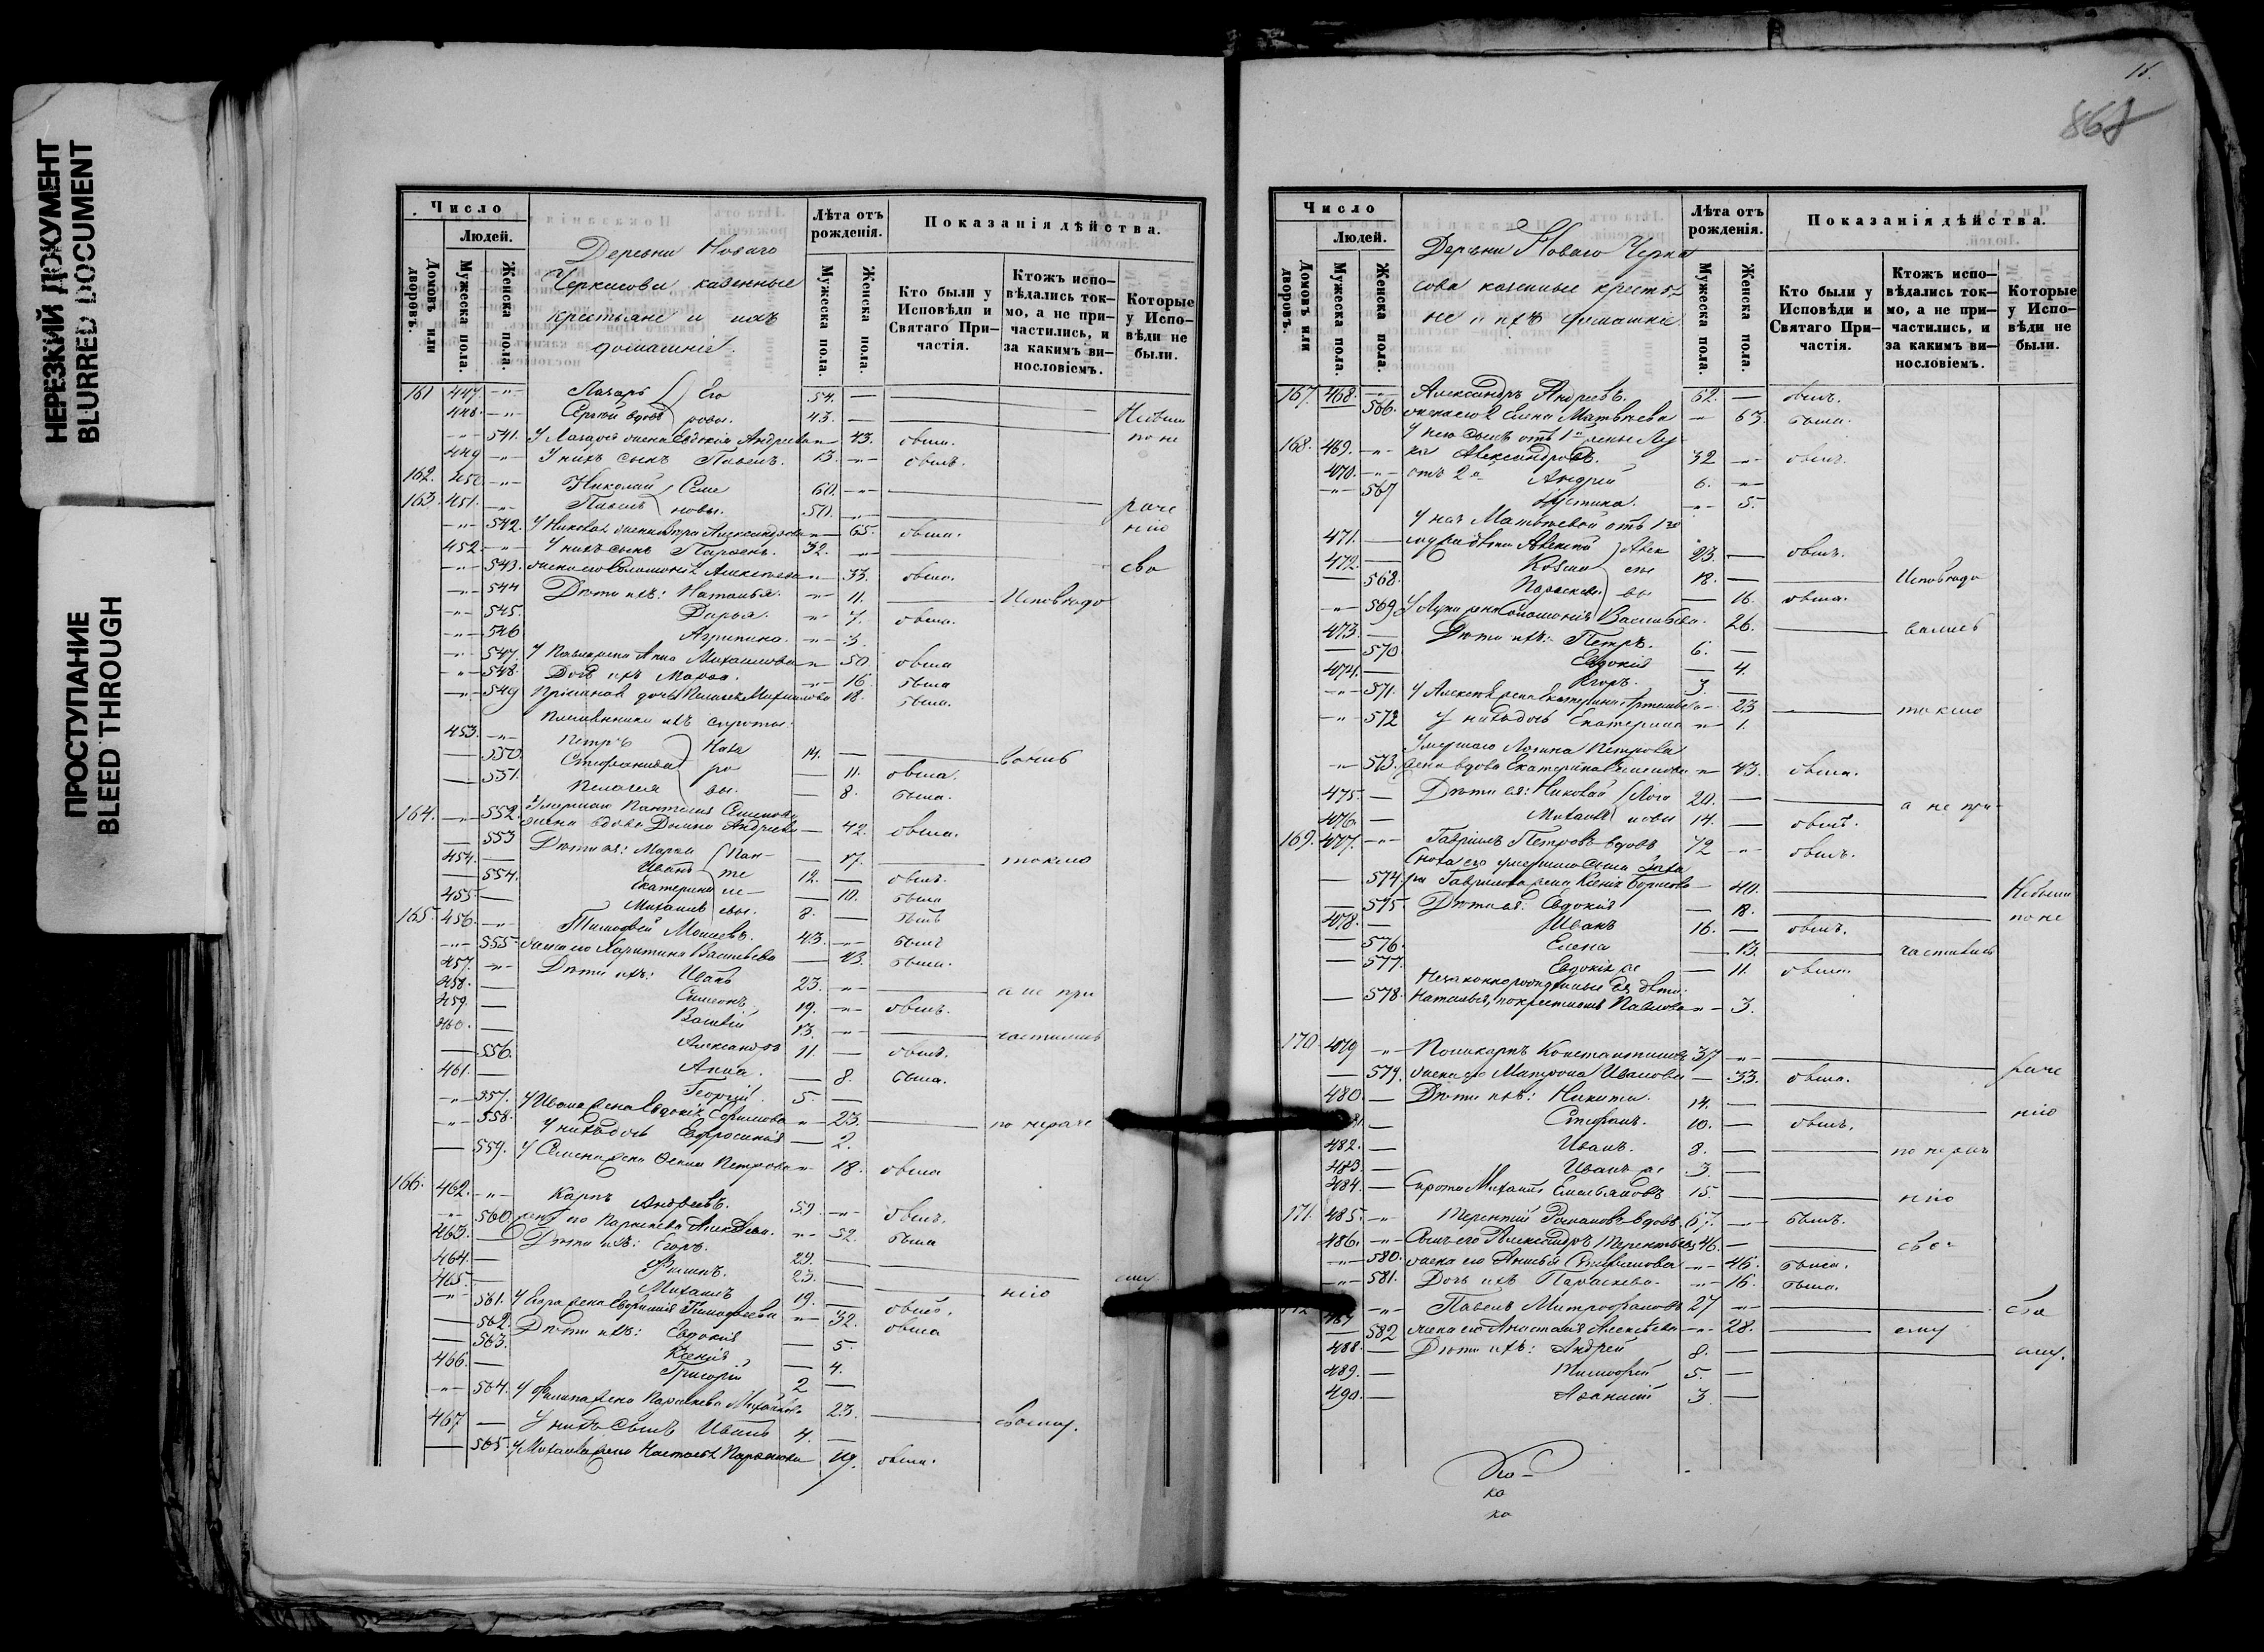 НЕРЕЗКИЙ ДОКУМЕНТ
BLURRED DOCUMENT
ПРОСТУПАНИЕ
BLEED THROUGH
Число
Людей.
Домовъ или дворовъ.
Мужеска пола.
Женска пола.
Деревни Новаго
Черкасова казенные
крестьяне и ихъ
домашніе.
Лѣта отъ рожденія.
Мужеска пола.
Женска пола.
Показанія дѣйства.
Кто были у Исповѣди и Святаго Причастія.
Ктожъ исповѣдались токмо, а не причастились, и за какимъ винословіемъ.
Которые у Исповѣди не были.
161 447 Лазарь Его 54.
448 Сергѣй вдовъ ровы. 43. Небыли
541. У Лазаря жена Евдокія Андреева 43. была. по не
449 У нихъ сынъ Павелъ. 13. былъ.
162. 450 Николай Семе 60.
163. 451. Павелъ новы. 50. раче
542. У Николая жена Александрова 65. была. нію
452 У нихъ сынъ Парѳенъ. 32.
543. жена его Соломонія Алексѣева 33. была. сво
544 Дѣти ихъ: Наталья. 11. Исповѣдо
545. Дарья. 7. была.
546 Агрипина. 3.
547. У Павла жена Анна Михайлова 50. была
548. Дочь ихъ Марѳа. 16. была
549 дочь Пелагея 18. была.
Племянники ихъ сироты:
453. Петръ Наза 14. вались
550. Стефанида ро 11. была.
551. Пелагея вы. 8. была.
164. Умершаго Пантелея Семенова
552. жена вдова Домна Андреева 42. была.
553 Дѣти ея: Марѳа Пан- 17. токмо
454. Иванъ те 12. былъ.
554. Екатерина ле- 10. была
455. Михаилъ евы. 8. былъ
165. 456. Тимофей Моисеевъ. 43. былъ
555. жена его Харитина Васильева 43. была.
457. Дѣти ихъ: Иванъ 23. а не при
458. Симеонъ. 19. былъ.
459. Василій 13. частились
460. Александръ 11. былъ.
556. Анна. 8. была.
461. Георгій. 5.
557. У Ивана жена Евдокія Ефимова 23. по нераче
558. У нихъ дочь Евфросинія 2.
559. У Семена жена Петрова 18. была
166. 462. Карпъ Андреевъ. 59 былъ.
560. жена его Параскева 52. была
463. Дѣти ихъ: Егоръ. 29.
464. Филипъ. 23. ему
465. Михаилъ 19. нію
561. У Егора жена Тимофеева 32. была
562. Дѣти ихъ: Евдокія 5.
563. Ксенія 4.
466. Григорій 2
564. У Филипа жена Параскева 23.
467 У нихъ сынъ Иванъ 4. своему.
565. У Михаила жена Настасья 19. была.
868
Число
Людей.
Домовъ или дворовъ.
Мужеска пола.
Женска пола.
Деревни Новаго Черка
сова казенные крестья
не и ихъ домашніе
Лѣта отъ рожденія.
Мужеска пола.
Женска пола.
Показанія дѣйства.
Кто были у Исповѣди и Святаго Причастія.
Ктожъ исповѣдались токмо, а не причастились, и за какимъ винословіемъ.
Которые у Исповѣди не были.
167. 468. Александръ Андреевъ. 62. былъ.
566. жена его Елена Матвѣева 63. была.
У него сынъ отъ 1й жены Лу
168. 469. ка Александровъ. 32 былъ.
470. отъ 2й Андрей 6.
567 Іустина. 5.
У нея Матвѣевой отъ 1го
471. мужа дѣти Алексѣй Алек 23. былъ.
472. Козма сѣе 18. Исповѣдо
568. Параскева вы 16. была.
569 У Луки жена Соломонія Васильева. 26. вались
473. Дѣти ихъ: Петръ. 6.
570 Евдокія 4.
474. Егоръ. 3.
571. У Алексѣя жена Екатерина Артемьева 23 токмо
572 У нихъ дочь Екатерина 1.
Умершаго Логина Петрова
573. жена вдова Екатерина Семенова 43. была.
475. Дѣти ея: Николай Логи 20. а не при-
476. Михаилъ новы 14. былъ.
169. 477. Гавріилъ Петровъ вдовъ 72 былъ.
Сноха его умершаго сына Заха
574. ра Гаврилова жена Ксенія Борисова 40. Небыли
575. Дѣти ея: Евдокія 18. по не
478. Иванъ 16. былъ.
576. Елена 13. частились
577. Евдокія же 11. была.
Незаконнорожденные ея дѣти:
578. Наталья, по крестномъ Павлова 3.
170 479 Поликарпъ Константиновъ 37 раче
579. жена его Матрона Иванова 33. была.
480. Дѣти ихъ: Никита. 14. нію
Стефанъ. 10. былъ.
482. Иванъ. 8. по нераче
483. Иванъ же 3
484. Сирота Михаилъ Емельяновъ 15. нію
171. 485. Терентій Романовъ вдовъ 67. былъ.
486. Сынъ его Александръ Терентьевъ 46.
580. жена его Анисья 46. была.
581. Дочь ихъ Параскева. 16. была.
172 487 Павелъ Митрофановъ 27 сво
582 жена его Анастасія Алексѣева 28. ему
488. Дѣти ихъ: Андрей 8. ему.
489. Тимофей 5.
490. Аѳанасій 3